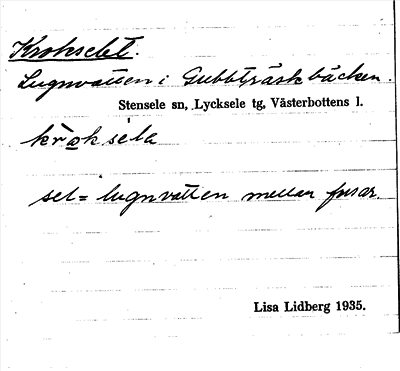 Krokselet.
Lugnvatten i Gubbträskbäcken.
Stensele sn, Lycksele tg, Västerbottens l.
sel = lugnvatten mellan forsar.
Lisa Lidberg 1935.